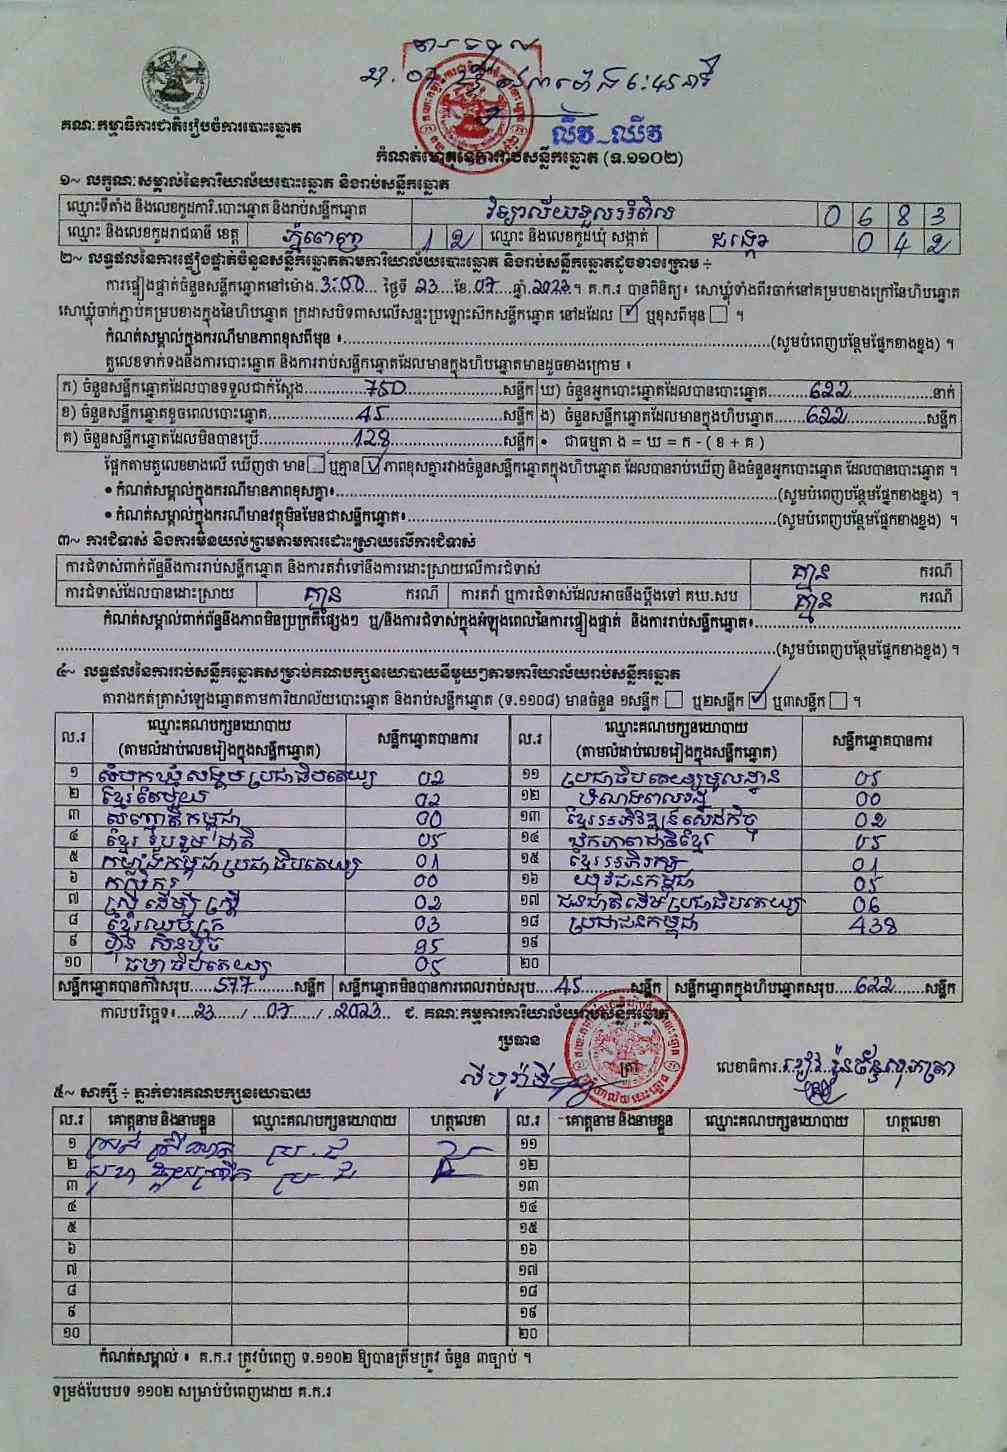 គណៈកម្មាធិការជាតិរៀបចំការបោះឆ្នោត
បានទទួល
លីវ ឈីវ
កំណត់ហេតុនៃការរាប់សន្លឹកឆ្នោត (ទ.១១០២)
១~ លក្ខណៈសម្គាល់នៃការិយាល័យបោះឆ្នោត និងរាប់សន្លឹកឆ្នោត
ឈ្មោះទីតាំង និងលេខកូដការិ.បោះឆ្នោត និងរាប់សន្លឹកឆ្នោត វិទ្យាល័យទួលអំពិល 0 6 8 3
ឈ្មោះ និងលេខកូដរាជធានី ខេត្ត ភ្នំពេញ 1 2 ឈ្មោះ និងលេខកូដឃុំ សង្កាត់ ដង្កោ 0 4 2
២~ លទ្ធផលនៃការផ្ទៀងផ្ទាត់ចំនួនសន្លឹកឆ្នោតតាមការិយាល័យបោះឆ្នោត និងរាប់សន្លឹកឆ្នោតដូចខាងក្រោម ÷
ការផ្ទៀងផ្ទាត់ចំនួនសន្លឹកឆ្នោតនៅម៉ោង 3:00 ថ្ងៃទី 23 ខែ 07 ឆ្នាំ 2023 ។ គ.ក.រ បានពិនិត្យ៖ សោឃ្លុំទាំងពីរចាក់នៅគម្របខាងក្រៅនៃហិបឆ្នោត
សោឃ្លុំចាក់ភ្ជាប់គម្របខាងក្នុងនៃហិបឆ្នោត ក្រដាសបិទពាសលើសន្ទះប្រឡោះស៊កសន្លឹកឆ្នោត នៅដដែល ☑ ឬខុសពីមុន ☐ ។
កំណត់សម្គាល់ក្នុងករណីមានភាពខុសពីមុន ៖ (សូមបំពេញបន្ថែមផ្នែកខាងខ្នង) ។
តួលេខទាក់ទងនឹងការបោះឆ្នោត និងការរាប់សន្លឹកឆ្នោតដែលមានក្នុងហិបឆ្នោតមានដូចខាងក្រោម ៖
ក) ចំនួនសន្លឹកឆ្នោតដែលបានទទួលជាក់ស្ដែង 750 សន្លឹក ឃ) ចំនួនអ្នកបោះឆ្នោតដែលបានបោះឆ្នោត 622 នាក់
ខ) ចំនួនសន្លឹកឆ្នោតខូចពេលបោះឆ្នោត សន្លឹក ង) ចំនួនសន្លឹកឆ្នោតដែលមានក្នុងហិបឆ្នោត 622 សន្លឹក
គ) ចំនួនសន្លឹកឆ្នោតដែលមិនបានប្រើ 128 សន្លឹក • ជាធម្មតា ង = ឃ = ក - ( ខ + គ )
ផ្អែកតាមតួលេខខាងលើ ឃើញថា មាន ☐ ឬគ្មាន ☑ ភាពខុសគ្នារវាងចំនួនសន្លឹកឆ្នោតក្នុងហិបឆ្នោត ដែលបានរាប់ឃើញ និងចំនួនអ្នកបោះឆ្នោត ដែលបានបោះឆ្នោត ។
• កំណត់សម្គាល់ក្នុងករណីមានភាពខុសគ្នា៖ (សូមបំពេញបន្ថែមផ្នែកខាងខ្នង) ។
• កំណត់សម្គាល់ក្នុងករណីមានវត្ថុមិនមែនជាសន្លឹកឆ្នោត៖ (សូមបំពេញបន្ថែមផ្នែកខាងខ្នង) ។
៣~ ការជំទាស់ និងការមិនយល់ព្រមតាមការដោះស្រាយលើការជំទាស់
ការជំទាស់ពាក់ព័ន្ធនឹងការរាប់សន្លឹកឆ្នោត និងការតវ៉ាទៅនឹងការដោះស្រាយលើការជំទាស់ គ្មាន ករណី
ការជំទាស់ដែលបានដោះស្រាយ គ្មាន ករណី ការតវ៉ា ឬការជំទាស់ដែលអាចនឹងប្ដឹងទៅ គឃ.សប គ្មាន ករណី
កំណត់សម្គាល់ពាក់ព័ន្ធនឹងភាពមិនប្រក្រតីផ្សេងៗ ឬ/និងការជំទាស់ក្នុងអំឡុងពេលនៃការផ្ទៀងផ្ទាត់ និងការរាប់សន្លឹកឆ្នោត៖
(សូមបំពេញបន្ថែមផ្នែកខាងខ្នង) ។
៤~ លទ្ធផលនៃការរាប់សន្លឹកឆ្នោតសម្រាប់គណបក្សនយោបាយនីមួយៗតាមការិយាល័យរាប់សន្លឹកឆ្នោត
តារាងកត់ត្រាសំឡេងឆ្នោតតាមការិយាល័យបោះឆ្នោត និងរាប់សន្លឹកឆ្នោត (ទ.១១០៨) មានចំនួន ១សន្លឹក ☐ ឬ២សន្លឹក ☑ ឬ៣សន្លឹក ☐ ។
ល.រ ឈ្មោះគណបក្សនយោបាយ (តាមលំដាប់លេខរៀងក្នុងសន្លឹកឆ្នោត) សន្លឹកឆ្នោតបានការ ល.រ ឈ្មោះគណបក្សនយោបាយ (តាមលំដាប់លេខរៀងក្នុងសន្លឹកឆ្នោត) សន្លឹកឆ្នោតបានការ
១ សំបុកឃ្មុំសង្គមប្រជាធិបតេយ្យ 02 ១១ ប្រជាធិបតេយ្យមូលដ្ឋាន 05
២ ខ្មែរតែមួយ 02 ១២ 00
៣ សញ្ជាតិកម្ពុជា 00 ១៣ ខ្មែរអភិវឌ្ឍន៍សេដ្ឋកិច្ច 02
៤ ខ្មែររួបរួមជាតិ 05 ១៤ ឯកភាពជាតិខ្មែរ 05
៥ កម្លាំងកម្ពុជាប្រជាធិបតេយ្យ 01 ១៥ ខ្មែរអភិរក្ស 01
៦ កសិករ 00 ១៦ យុវជនកម្ពុជា 05
៧ ស្ត្រីដើម្បីស្ត្រី 02 ១៧ ជនជាតិដើមប្រជាធិបតេយ្យ 06
៨ ខ្មែរឈប់ក្រ 03 ១៨ ប្រជាជនកម្ពុជា 438
៩ ហ៊្វុនស៊ិនប៉ិច 95 ១៩
១០ ធម្មាធិបតេយ្យ 05 ២០
សន្លឹកឆ្នោតបានការសរុប 577 សន្លឹក សន្លឹកឆ្នោតមិនបានការពេលរាប់សរុប 45 សន្លឹក សន្លឹកឆ្នោតក្នុងហិបឆ្នោតសរុប 622 សន្លឹក
កាលបរិច្ឆេទ៖ 23 / 07 / 2023 ជ. គណៈកម្មការការិយាល័យរាប់សន្លឹកឆ្នោត
ប្រធាន
ត្រា លេខាធិការ
៥~ សាក្សី ÷ ភ្នាក់ងារគណបក្សនយោបាយ
ល.រ គោត្តនាម និងនាមខ្លួន ឈ្មោះគណបក្សនយោបាយ ហត្ថលេខា ល.រ គោត្តនាម និងនាមខ្លួន ឈ្មោះគណបក្សនយោបាយ ហត្ថលេខា
១ ប្រ.ជ ១១
២ ប្រ.ជ ១២
៣ ១៣
៤ ១៤
៥ ១៥
៦ ១៦
៧ ១៧
៨ ១៨
៩ ១៩
១០ ២០
កំណត់សម្គាល់ ៖ គ.ក.រ ត្រូវបំពេញ ទ.១១០២ ឱ្យបានត្រឹមត្រូវ ចំនួន ៣ច្បាប់ ។
ទម្រង់បែបបទ ១១០២ សម្រាប់បំពេញដោយ គ.ក.រ